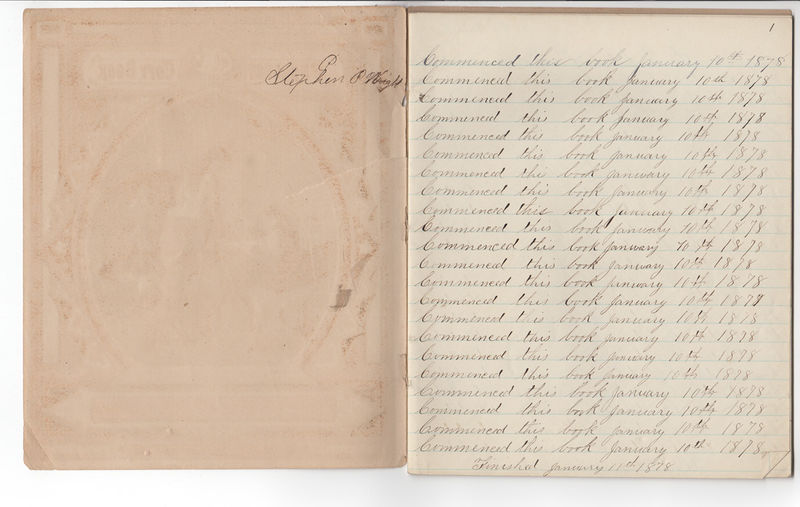 Stephen P Wright
1
Commenced this book January 10th 1878
Commenced this book January 10th 1878
Commenced this book January 10th 1878
Commenced this book January 10th 1878
Commenced this book January 10th 1878
Commenced this book January 10th 1878
Commenced this book January 10th 1878
Commenced this book January 10th 1878
Commenced this book January 10th 1878
Commenced this book January 10th 1878
Commenced this book January 10th 1878
Commenced this book January 10th 1878
Commenced this book January 10th 1878
Commenced this book January 10th 1878
Commenced this book January 10th 1878
Commenced this book January 10th 1878
Commenced this book January 10th 1878
Commenced this book January 10th 1878
Commenced this book January 10th 1878
Commenced this book January 10th 1878
Commenced this book January 10th 1878
Commenced this book January 10th 1878
Finished January 11th 1878